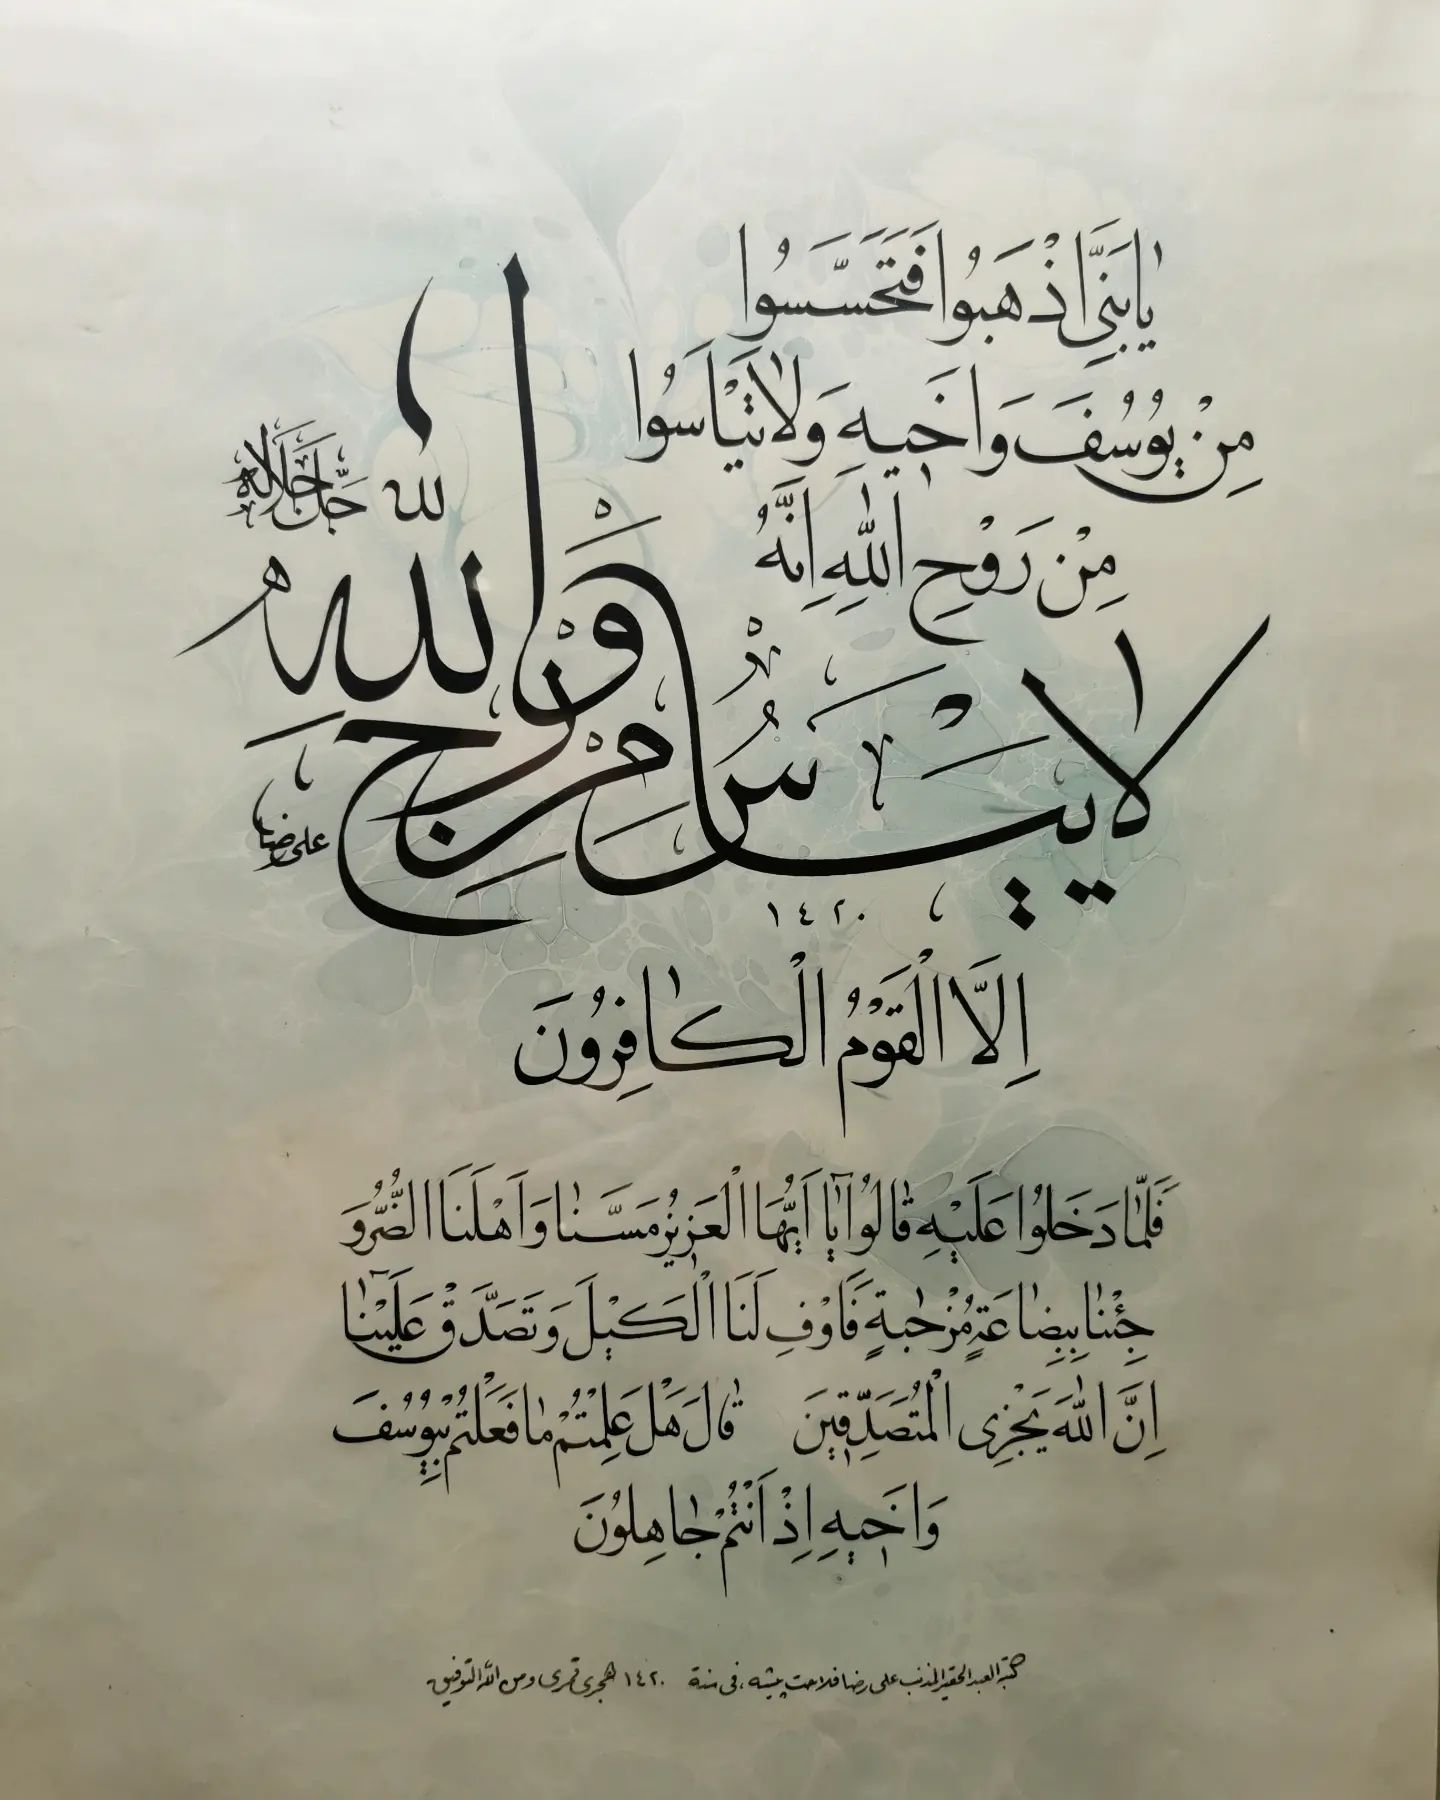 يٰابَنِيَّ اذْهَبُوا فَتَحَسَّسُوا
مِنْ يُوسُفَ وَاَخيهِ وَلٰا تَيْاَسُوا
مِنْ رَوْحِ اللّٰهِ اِنَّهُ
لٰا يَيْاَسُ مِنْ رَوْحِ اللهِ
الله جَلَّ جَلَالُه
علی رضا
١٤٢٠
اِلَّا الْقَوْمُ الْكٰافِرُونَ
فَلَمّٰا دَخَلُوا عَلَيْهِ قٰالُوا يٰا اَيُّهَا الْعَزيزُ مَسَّنٰا وَاَهْلَنَا الضُّرُّ وَ
جِئْنٰا بِبِضٰاعَةٍ مُزْجٰيةٍ فَاَوْفِ لَنَا الْكَيْلَ وَتَصَدَّقْ عَلَيْنٰا
اِنَّ اللّٰهَ يَجْزِى الْمُتَصَدِّقينَ قٰالَ هَلْ عَلِمْتُمْ مٰا فَعَلْتُمْ بِيُوسُفَ
وَاَخيهِ اِذْ اَنْتُمْ جٰاهِلُونَ
كتبه العبد الحقير المذنب علی رضا فلاحت پیشه، فی سنة ١٤٢٠ هجری قمری ومن الله التوفیق